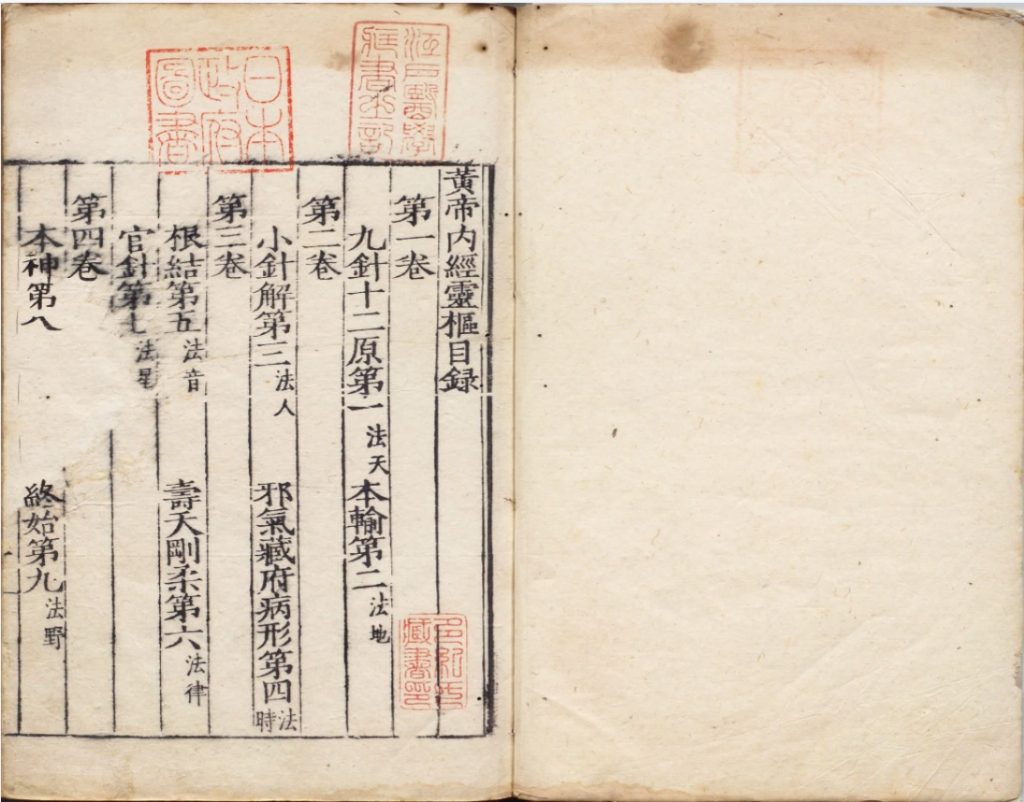 江戸醫學
藏書之記
日本
政府
圖書
黃帝内經靈樞目録
第一卷
九針十二原第一法天 本輸第二法地
第二卷
小針解第三法人 邪氣藏府病形第四法時
第三卷
根結第五法音 壽夭剛柔第六法律
官針第七法星
第四卷
本神第八 終始第九法野
多紀氏
藏書印